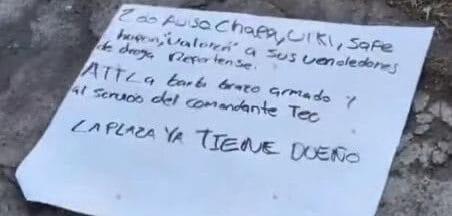 2do Aviso Chapa, Uiki, Safe
huevon, "valoren" a sus vendedores
de droga Reportense.
ATT La barbi brazo armado y
al servicio del comandante Teo
LA PLAZA YA TIENE DUEÑO